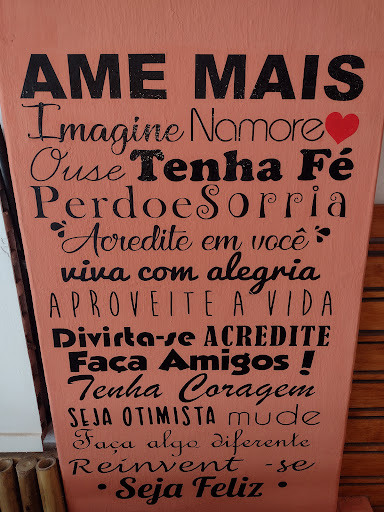 AME MAIS
Imagine Namore
Ouse Tenha Fé
Perdoe Sorria
Acredite em você
viva com alegria
APROVEITE A VIDA
Divirta-se ACREDITE
Faça Amigos!
Tenha Coragem
SEJA OTIMISTA mude
Faça algo diferente
Reinvent -se
• Seja Feliz •